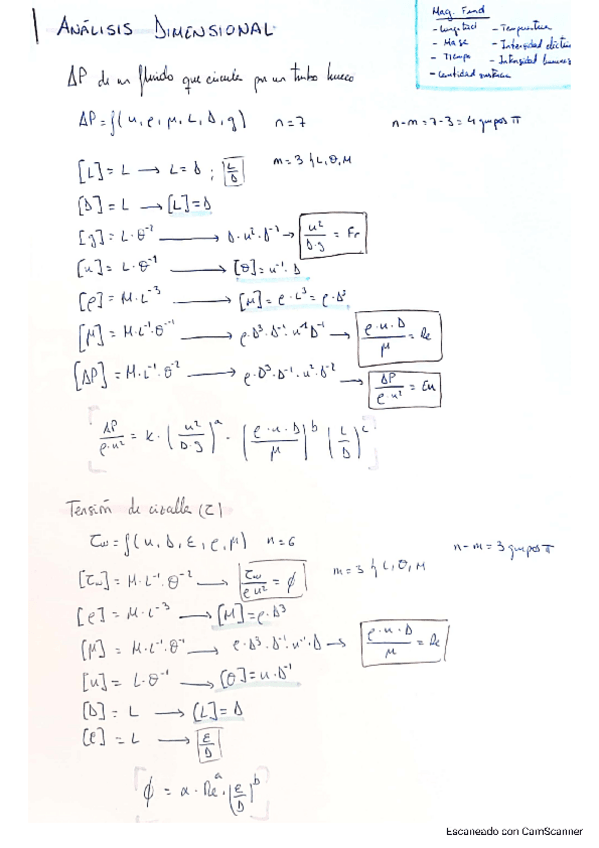 ANÁLISIS DIMENSIONAL
Mag. Fund
- Longitud - Temperatura
- Masa - Intensidad eléctrica
- Tiempo - Intensidad luminosa
- Cantidad sustancia
ΔP de un fluido que circula por un tubo hueco
ΔP = f(u, ρ, μ, L, D, g) n=7 n-m = 7-3 = 4 grupos π
[L] = L → L = D ; L/D m = 3 { L, θ, M
[D] = L → [L] = D
[g] = L·θ⁻² → D·u²·D⁻² → u²/D·g = Fr
[u] = L·θ⁻¹ → [θ] = u⁻¹·D
[ρ] = M·L⁻³ → [M] = ρ·L³ = ρ·D³
[μ] = M·L⁻¹·θ⁻¹ → ρ·D³·D⁻¹·u¹D⁻¹ → ρ·u·D/μ = Re
[ΔP] = M·L⁻¹·θ⁻² → ρ·D³·D⁻¹·u²·D⁻² → ΔP/ρ·u² = Eu
ΔP/ρ·u² = k·(u²/D·g)ᵃ · (ρ·u·D/μ)ᵇ (L/D)ᶜ
Tensión de cizalla (τ)
τw = f(u, D, ε, ρ, μ) n=6 n-m = 3 grupos π
[τw] = M·L⁻¹·θ⁻² → τw/ρu² = ϕ m = 3 { L, θ, M
[ρ] = M·L⁻³ → [M] = ρ·D³
[μ] = M·L⁻¹·θ⁻¹ → ρ·D³·D⁻¹·u⁻¹·D → ρ·u·D/μ = Re
[u] = L·θ⁻¹ → [θ] = u·D⁻¹
[D] = L → [L] = D
[ε] = L → ε/D
ϕ = α·Reᵃ·(ε/D)ᵇ
Escaneado con CamScanner